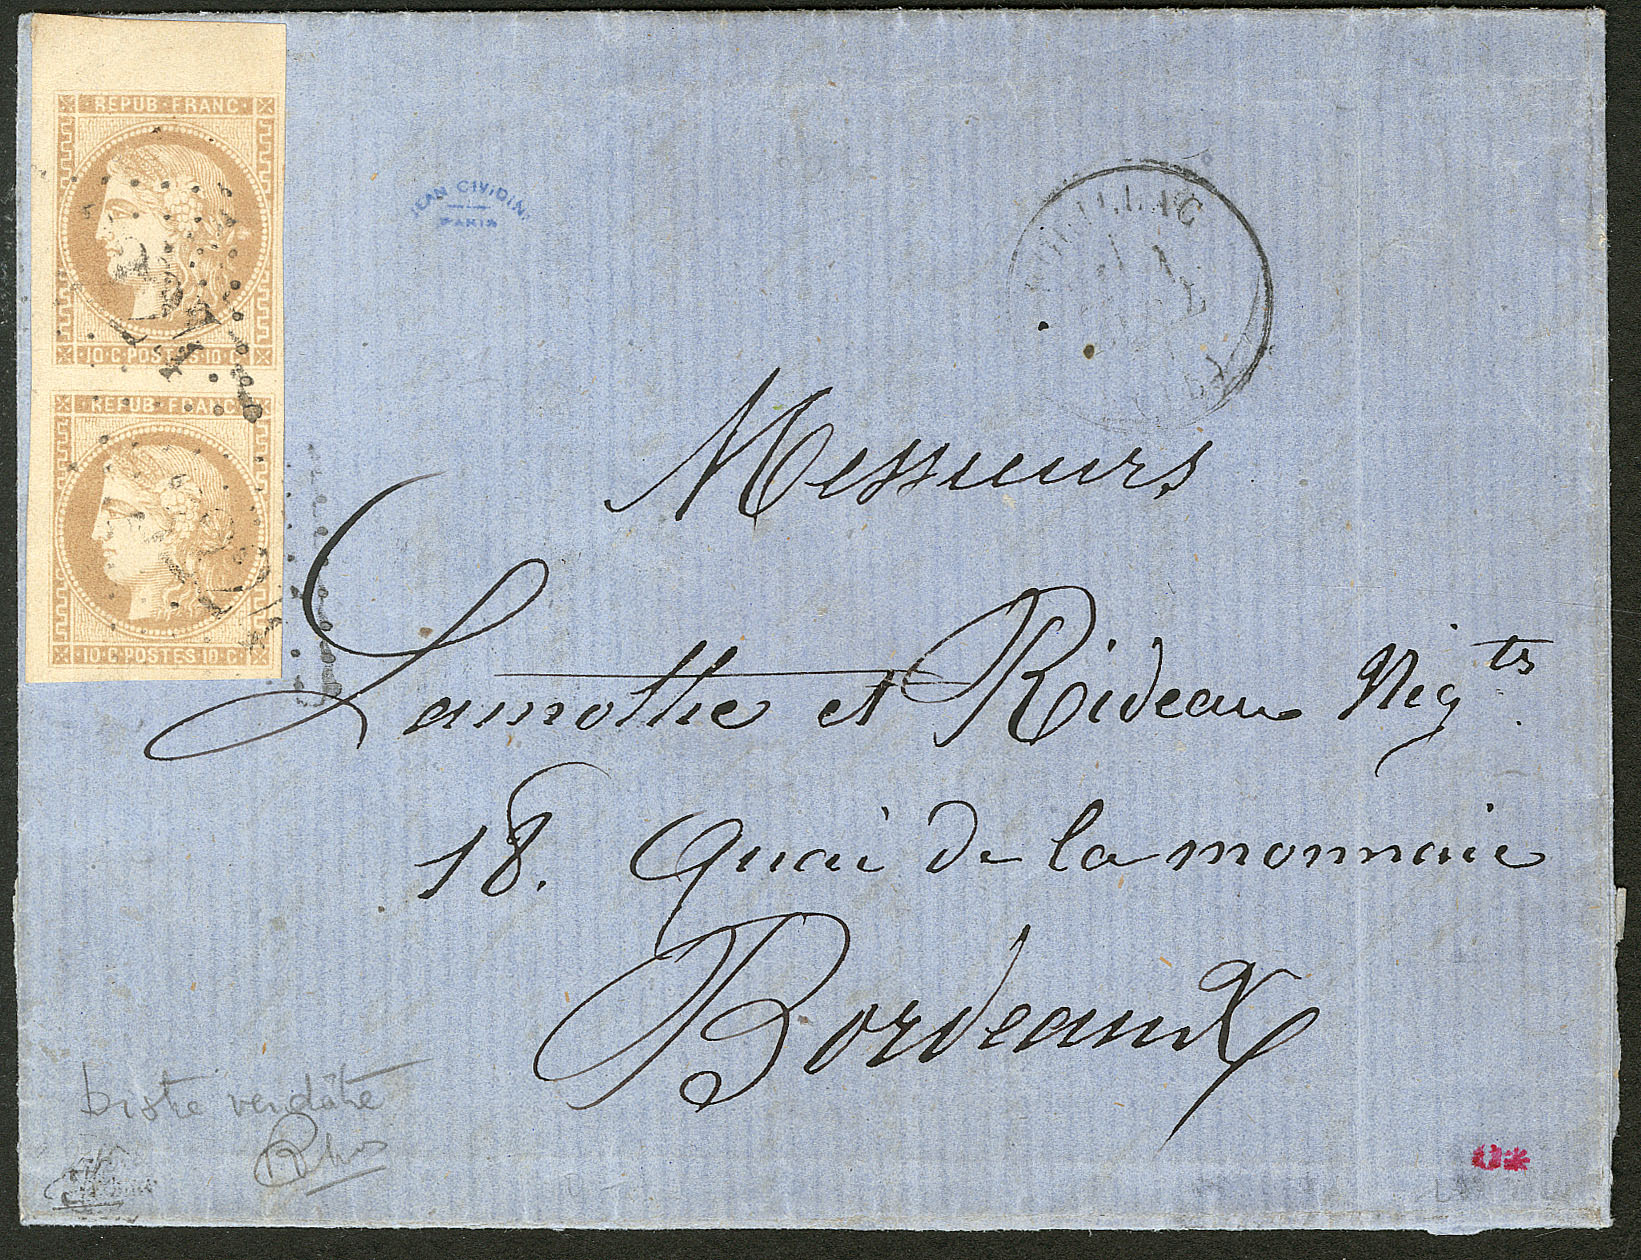 REPUB·FRANC·
10·C·POSTES·10·C·
REPUB·FRANC
10·C·POSTES·10·C·
JEAN CIVIDINI
PARIS
Messieurs
Lamothe et Rideau Nég.ts
18. Quai de la monnaie
Bordeaux
bistre verdâtre